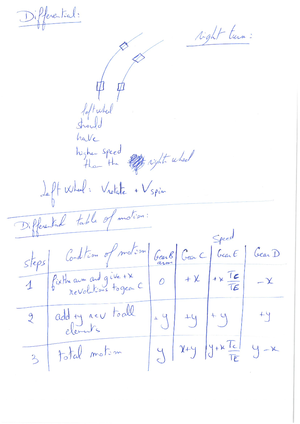 Differential:
right turn:
left wheel
should
have
higher speed
than the right wheel
left wheel: Vrotate + Vspin
Differential table of motion:
Speed
steps Condition of motion Gear B Gear C Gear E Gear D
arm
1 fix the arm and give +x
revolutions to gear C 0 +x +x TC/TE -x
2 add +y rev to all
elements +y +y +y +y
3 total motion y x+y y+x TC/TE y-x